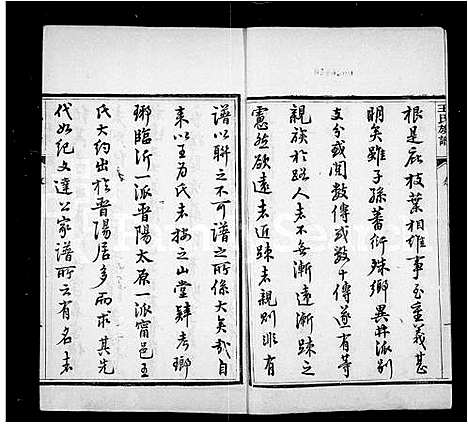 王氏族譜
根是庇枝葉相維事至重義甚
明矣雖子孫蕃衍殊鄉異井派別
支分或閱數傳或數十傳遂有等
親族於路人者不無漸遠漸踈之
憲然欲遠者近踈者親則非有
譜以聯之不可譜之所係大矣哉自
來以王為氏者按之山堂肆考瑯
瑯臨沂一派晋陽太原一派甯邑王
氏大約出於晋陽居多而求其先
代如紀文達公家譜所云有名者